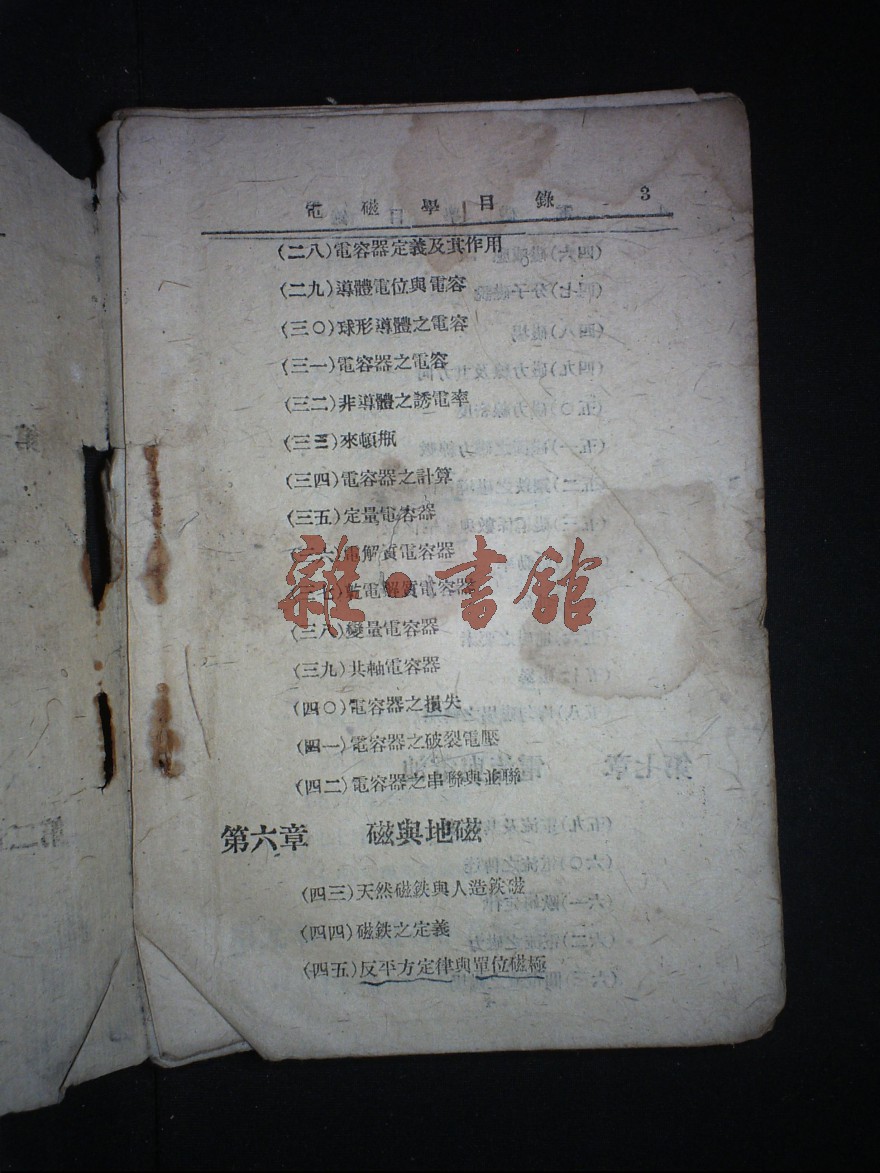 電磁學目錄 3
(二八)電容器定義及其作用
(二九)導體電位與電容
(三〇)球形導體之電容
(三一)電容器之電容
(三二)非導體之誘電率
(三三)來頓瓶
(三四)電容器之計算
(三五)定量電容器
六)電解質電容器
電解質電容器
雜·書館
(三八)變量電容器
(三九)共軸電容器
(四〇)電容器之損失
(四一)電容器之破裂電壓
(四二)電容器之串聯與並聯
第六章 磁與地磁
(四三)天然磁鉄與人造鉄磁
(四四)磁鉄之定義
(四五)反平方定律與單位磁極